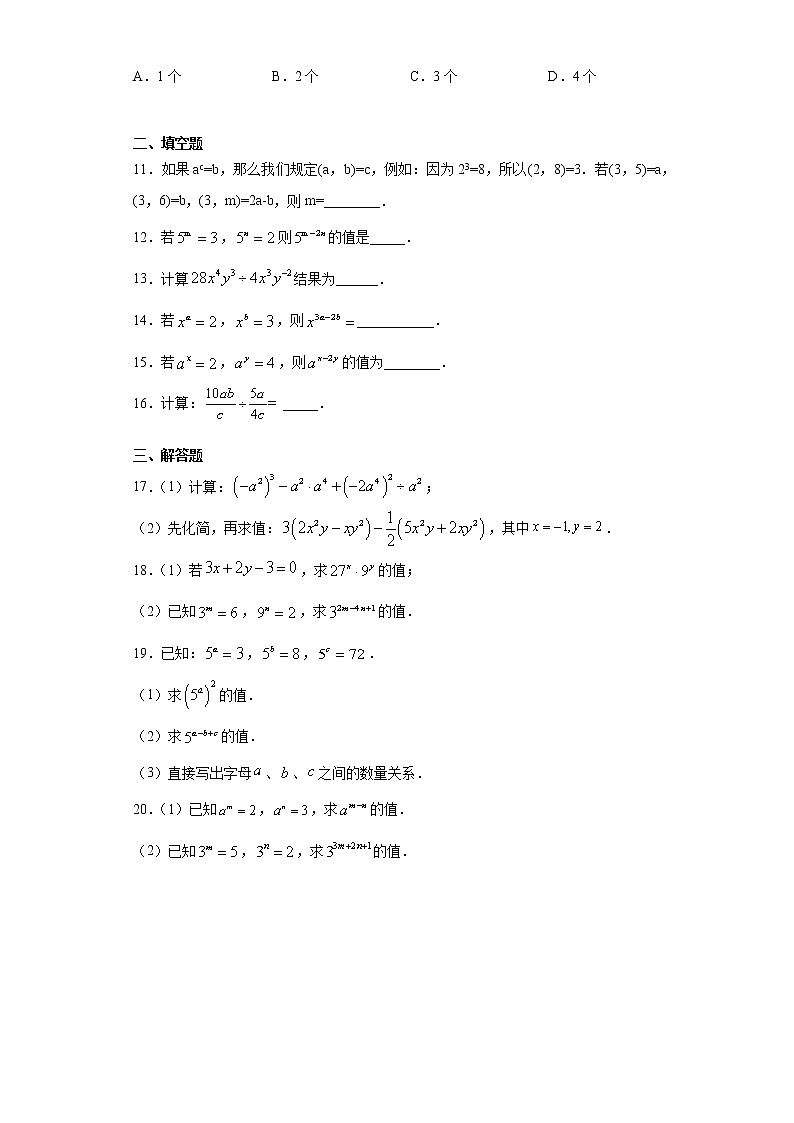 A．1个 B．2个 C．3个 D．4个
二、填空题
11．如果aᶜ=b，那么我们规定(a，b)=c，例如：因为2³=8，所以(2，8)=3．若(3，5)=a，
(3，6)=b，(3，m)=2a-b，则m=________．
12．若5^m = 3，5^n = 2则5^{m-2n}的值是_____．
13．计算28x⁴y³ ÷ 4x³y⁻²结果为______．
14．若x^a = 2，x^b = 3，则x^{3a-2b} =___________．
15．若a^x = 2，a^y = 4，则a^{x-2y}的值为________．
16．计算：\frac{10ab}{c} ÷ \frac{5a}{4c} = _____．
三、解答题
17．（1）计算：(-a²)³ - a²·a⁴ + (-2a⁴)² ÷ a²；
（2）先化简，再求值：3(2x²y - xy²) - \frac{1}{2}(5x²y + 2xy²)，其中x = -1, y = 2．
18．（1）若3x + 2y - 3 = 0，求27^x·9^y的值；
（2）已知3^m = 6，9^n = 2，求3^{2m-4n+1}的值．
19．已知：5^a = 3，5^b = 8，5^c = 72．
（1）求(5^a)²的值．
（2）求5^{a-b+c}的值．
（3）直接写出字母a、b、c之间的数量关系．
20．（1）已知a^m = 2，a^n = 3，求a^{m-n}的值．
（2）已知3^m = 5，3^n = 2，求3^{3m+2n+1}的值．